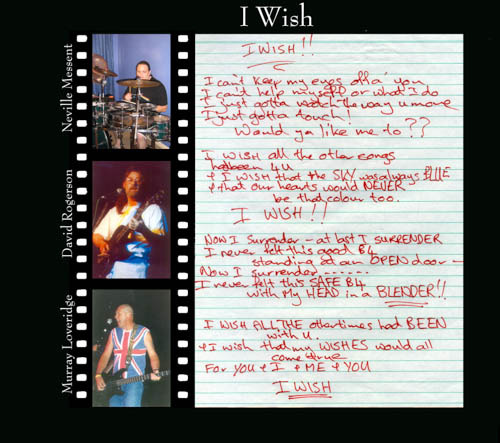 I Wish
Neville Messent
David Rogerson
Murray Loveridge
I WISH!!
I can't keep my eyes offa' you
I can't help myself or what I do
I just gotta watch the way u move
I just gotta touch!
Would ya like me to??
I WISH all the other songs
had been 4U
& I WISH that the SKY was always BLUE
& that our hearts would NEVER
be that colour too.
I WISH!!
NOW I Surrender - at last I SURRENDER
I never felt this good B4
standing at an OPEN door -
Now I surrender ------
I never felt this SAFE B4
with My HEAD in a BLENDER!!
I WISH ALL THE other times had BEEN
with u.
& I wish that my WISHES would all
come true
For YOU & I & ME & YOU
I WISH